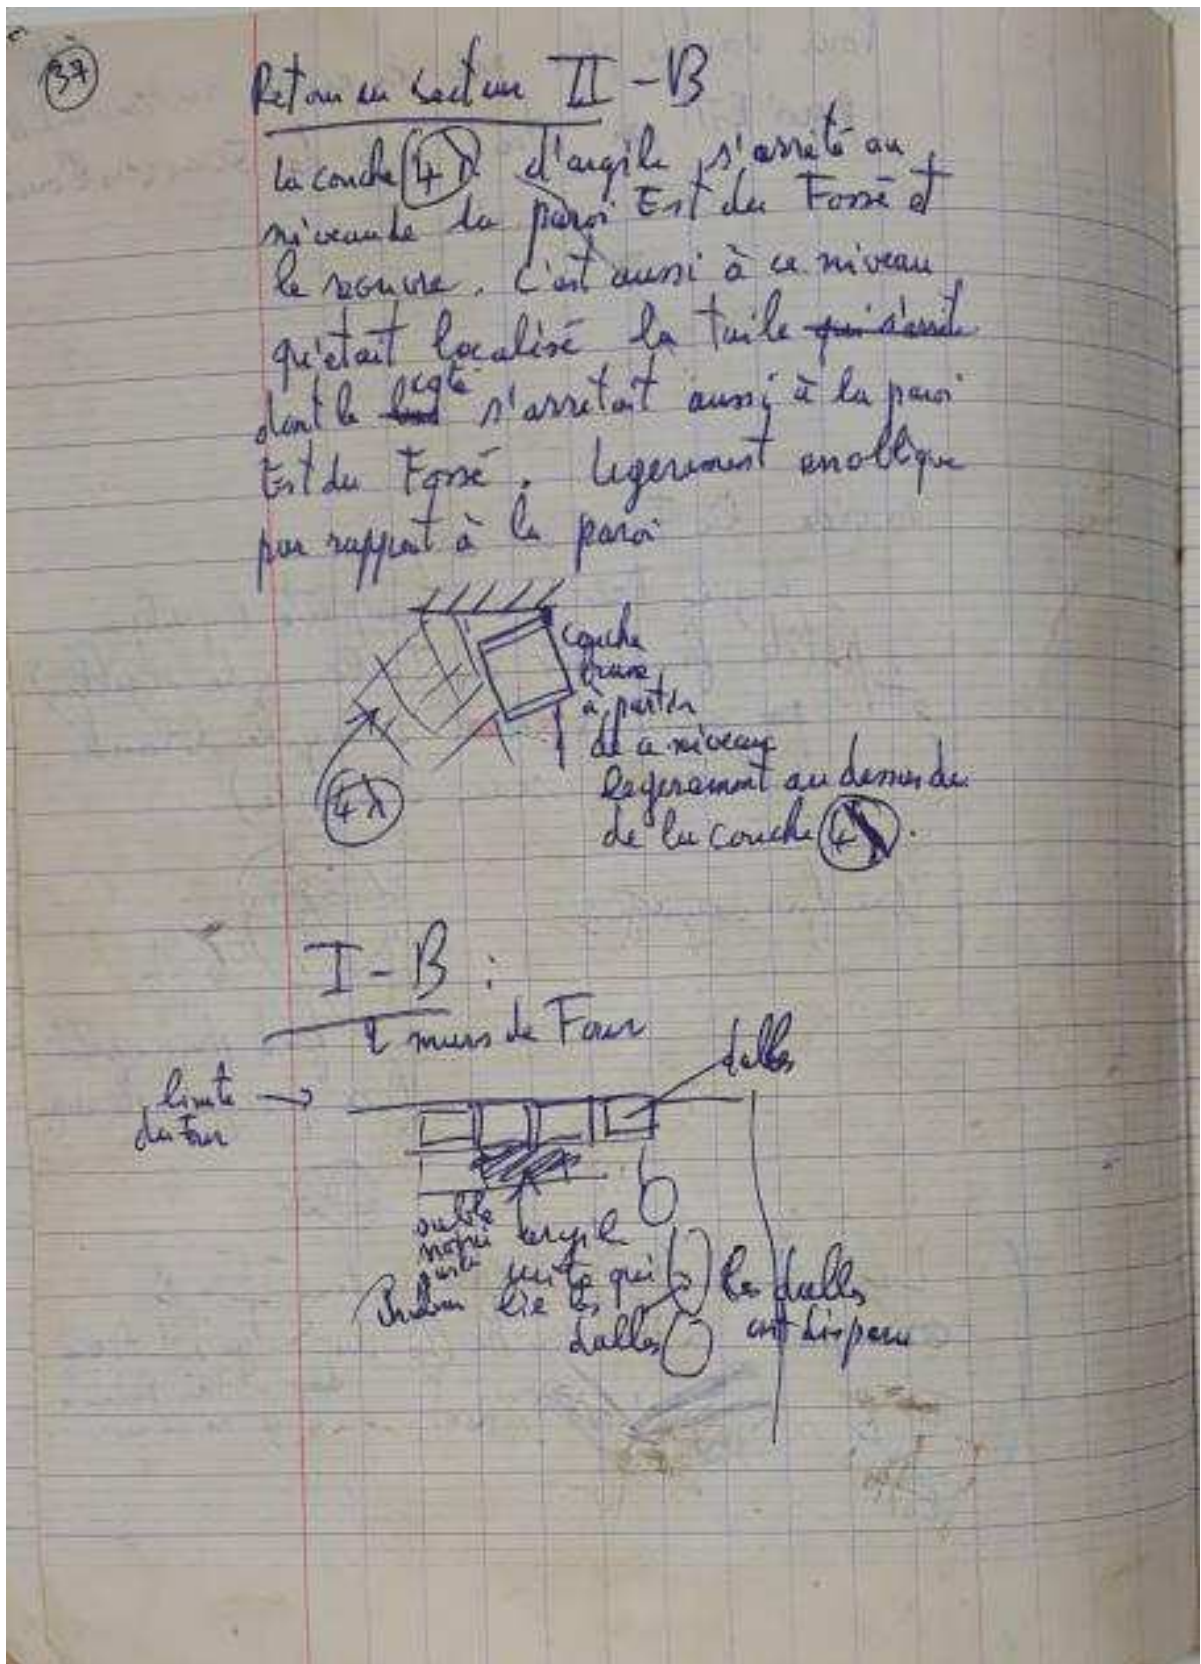 37
Retour au secteur II - B
La couche 4λ d'argile s'arrête au
niveau de la paroi Est du Fossé et
le recouvre. C'est aussi à ce niveau
qu'était localisé la tuile qui s'arrête
dont le coté s'arretait aussi à la paroi
Est du Fossé. Legerement en oblique
par rapport à la paroi
couche
brune
à partir
de ce niveau
legerement au dessus de
de la couche 4
4λ
I - B :
2 murs de Four
dalles
limite
du Four
sable
argile
cuite qui
lie les
dalles
les dalles
ont disparu